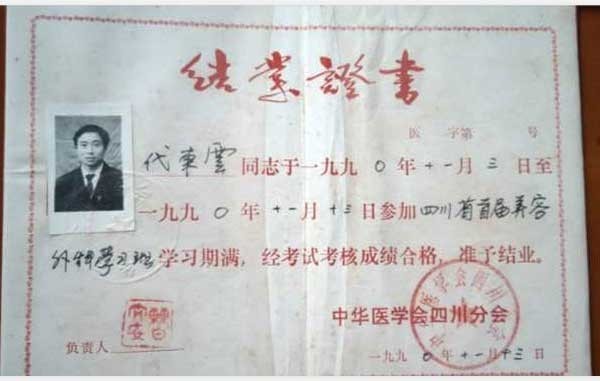 结业證書
医 字第 号
代東雲同志于一九九0年十一月三日至
一九九0年十一月十三日参加四川省首届美容
外科学习班学习期满，经考试考核成绩合格，准予结业。
中华医学会四川分会
负责人
一九九0年十一月十三日